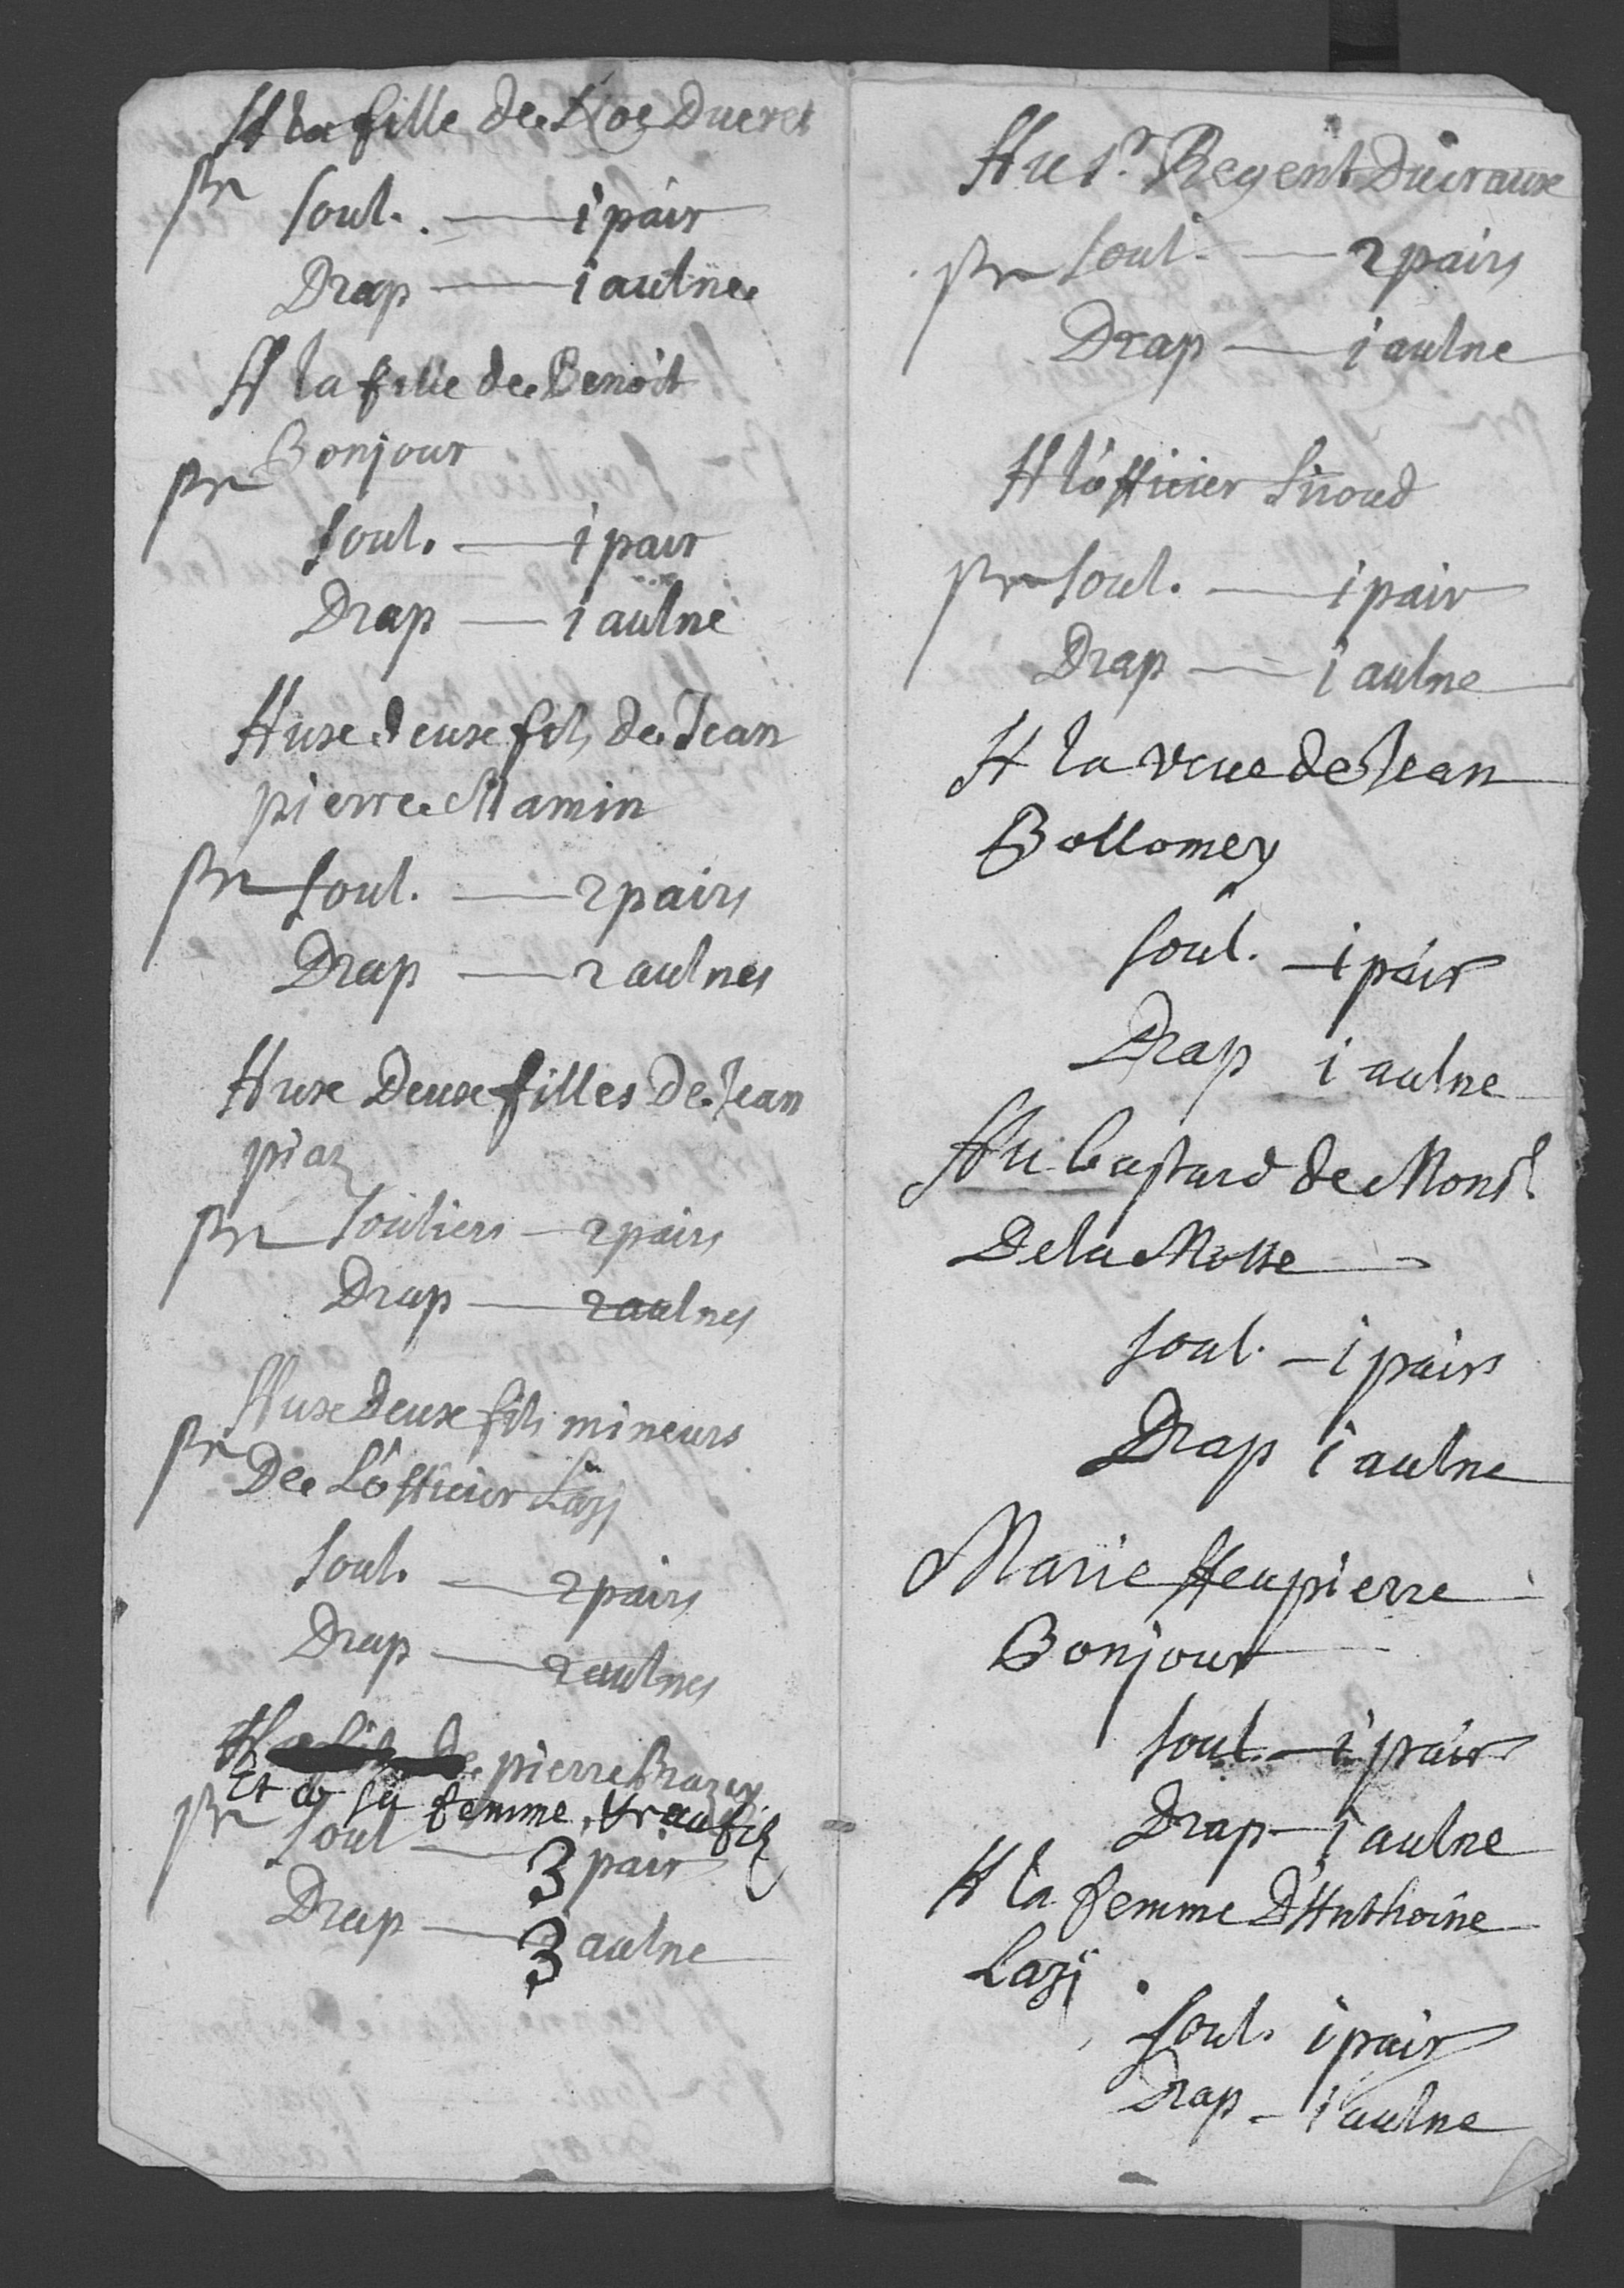 A la fille de Noé Ducret
pr
soul. — 1 pair
Drap — 1 aulne
A la fille de Benoit
Bonjour
pr
soul. — 1 pair
Drap — 1 aulne
Aux deux fils de Jean
pierre Mamin
pr soul. — 2 pairs
Drap — 2 aulnes
Aux Deux filles De Jean
piaz
pr souliers — 2 pairs
Drap — 2 aulnes
Aux deux fils mineurs
pr
De L'officier Lazj
soul. — 2 pairs
Drap — 2 aulnes
A pierre
Et a sa femme, & au filz
pr soul — 3 pair
Drap — 3 aulne
Au Sr. Regent Ducraux
pr soul. — 2 pairs
Drap — 1 aulne
A l'officier
pr soul. — 1 pair
Drap — 1 aulne
A la veue de Jean
Bollomey
soul. — 1 pair
Drap 1 aulne
Au bastard de Monsr.
De la Motte —
soul. — 1 pairs
Drap 1 aulne
Marie feu pierre
Bonjour
soul. — 1 pair
Drap — 1 aulne
A la femme D'Anthoine
Lazj
soul. 1 pair
Drap — 1 aulne